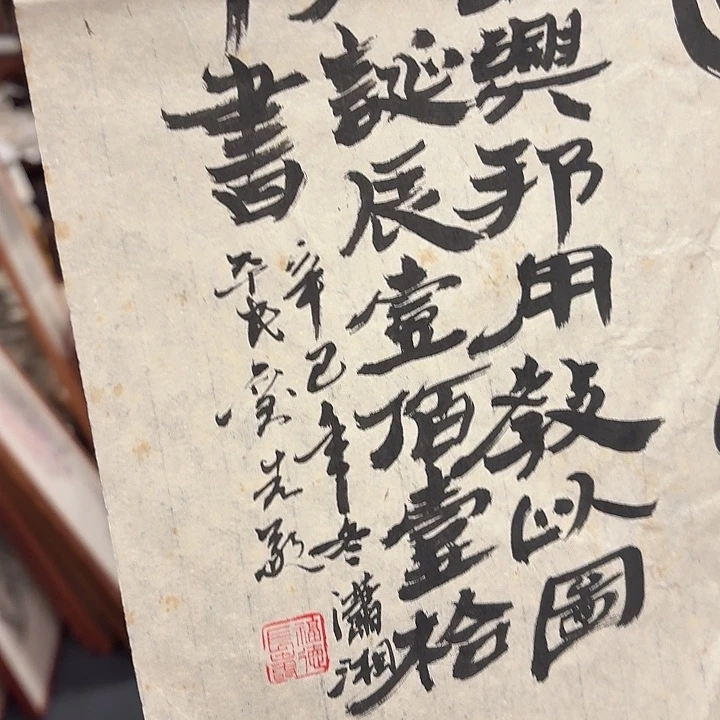 興邦用教以圖
誕辰壹佰壹拾
書
辛巳年冬瀟湘
先敬